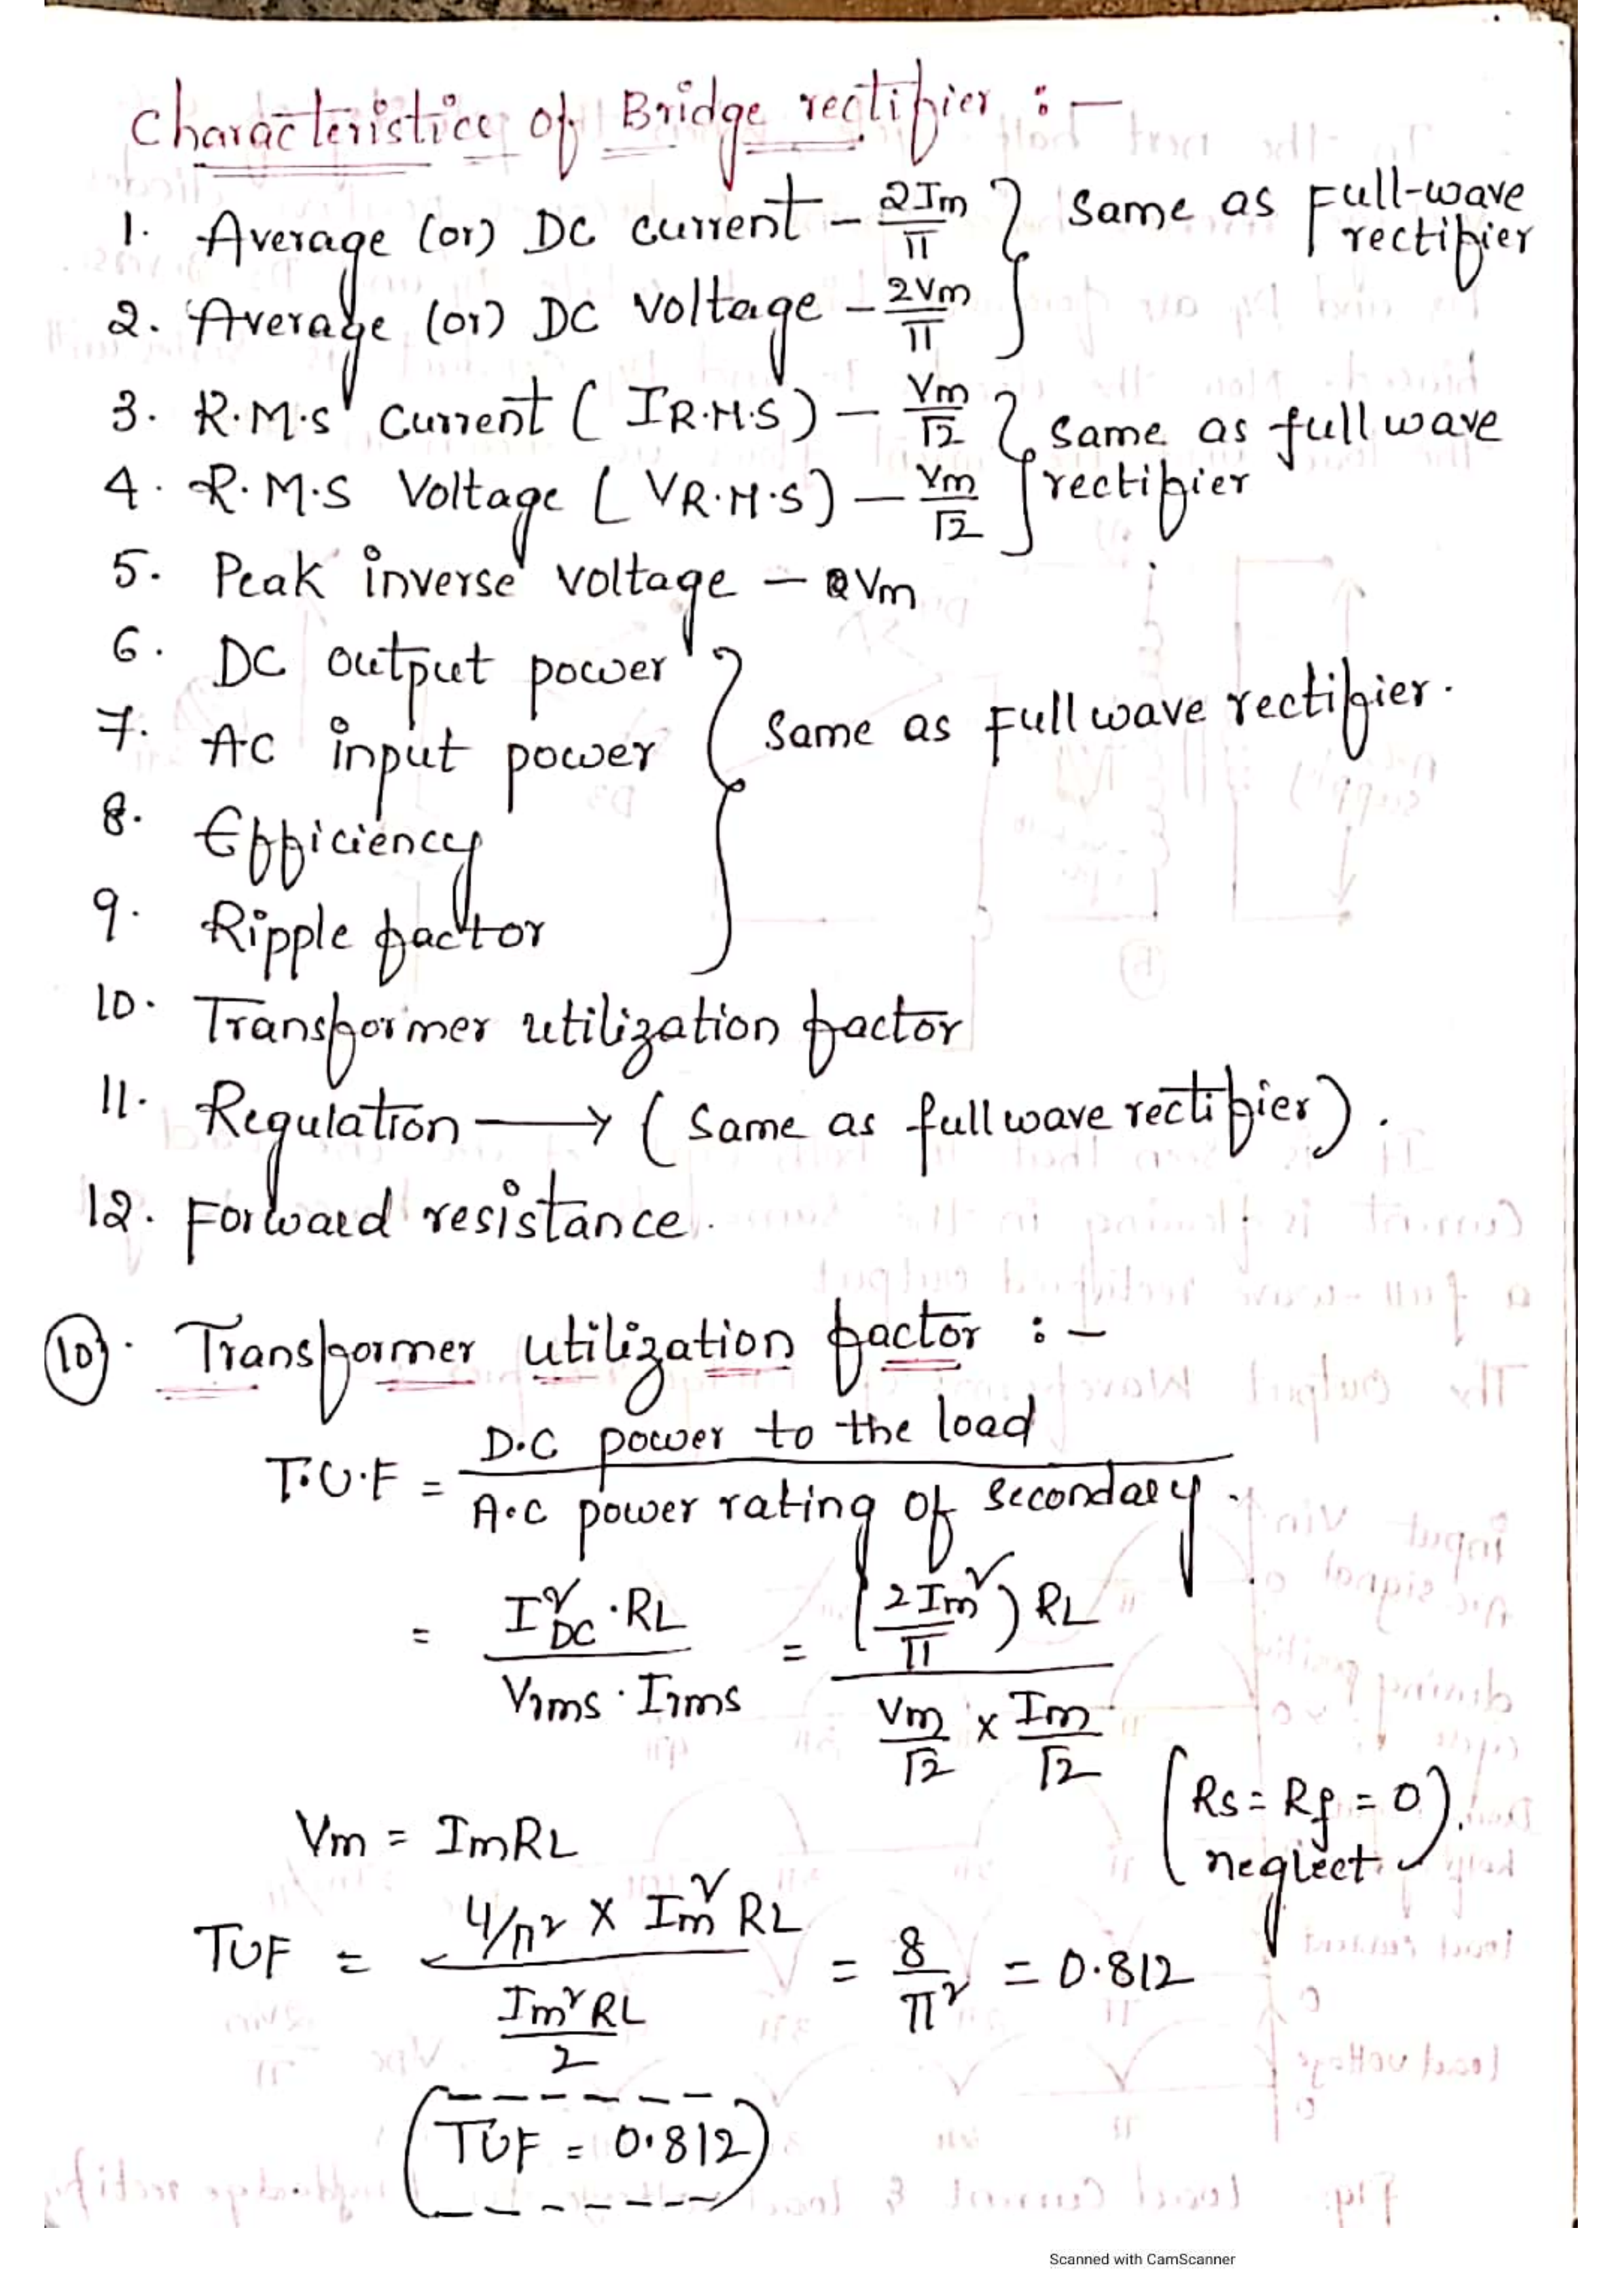 Characteristics of Bridge rectifier :-
1. Average (or) DC current - 2Im/π } same as Full-wave rectifier
2. Average (or) DC voltage - 2Vm/π
3. R.M.S current ( IR.M.S) - Vm/√2 } same as full wave rectifier
4. R.M.S Voltage ( VR.M.S) - Vm/√2
5. Peak inverse voltage - Vm
6. DC output power } Same as Full wave rectifier.
7. AC input power
8. Efficiency
9. Ripple factor
10. Transformer utilization factor
11. Regulation → ( Same as full wave rectifier).
12. Forward resistance.
10). Transformer utilization factor :-
T.U.F = D.C power to the load / A.C power rating of secondary.
= I²DC . RL / Vrms . Irms = (2Im/π)² RL / Vm/√2 x Im/√2
Vm = ImRL (Rs = Rf = 0 neglect).
TUF = 4/π² x Im² RL / Im² RL/2 = 8/π² = 0.812
TUF = 0.812
Scanned with CamScanner